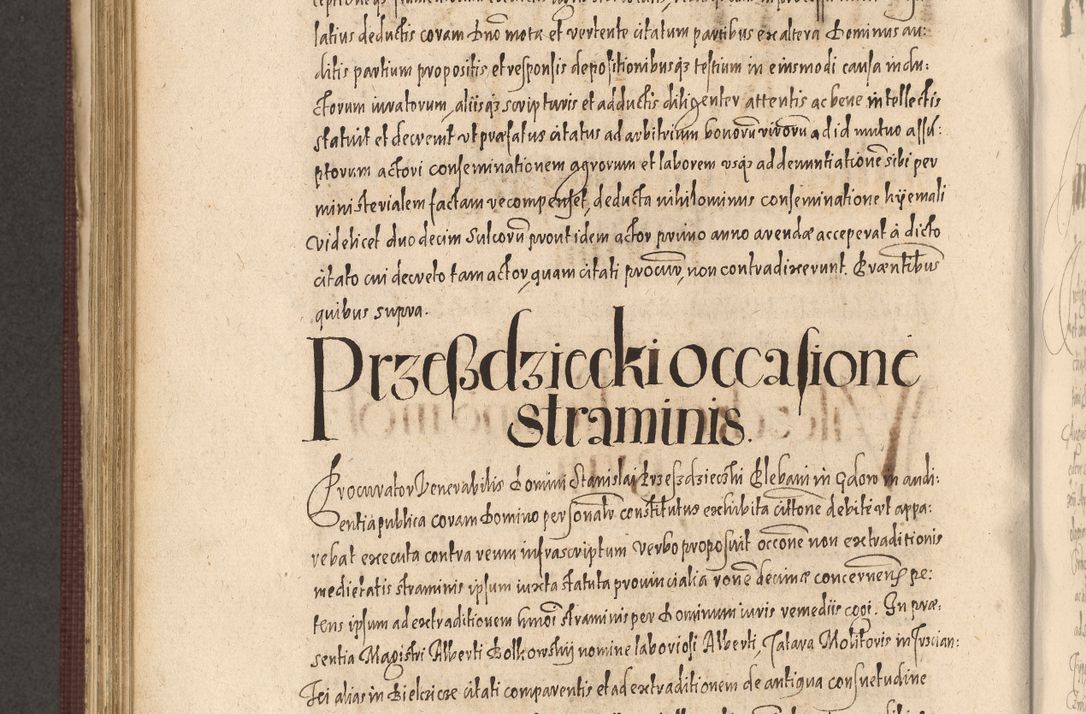 latius deductis coram Dno mota et vertente citatum partibus ex altera Dominus au:
ditis partium propositis et responsis depositionibusqz testium in eiusmodi causa indu:
ctorum iuratorum, aliisqz scripturis et adductis diligenter attentis ac bene intellectis
statuit et decrevit ut præfatus citatus ad arbitrium bonorū virorū ad id mutuo assu:
ptorum actori conseminationem agrorum et laborem usqz ad denuntiationē sibi per
ministerialem factam recompenset, deducta nihilominus conseminatione hÿemali
videlicet duodecim sulcorū prout idem actor primo anno arendæ acceperat à dicto
citato cui decreto tam actor, quam citati procur, non contradixerunt. Præntibus
quibus supra.
Przeßdziecki occasione
straminis.
Procurator Venerabilis Domini Stanislai Przeszdziecski Plebani in Gdow in audi:
entia publica coram Domino personalr constitutus exhibita cittone debite ut appa:
rebat executa contra reum infrascriptum verbo proposuit occone non extraditionis
medietatis straminis ipsum iuxta statuta provincialia rone decimæ concernens pe:
tens ipsum ad extraditionem hmoi straminis per Dominum iuris remediis cogi. In præ:
sentia Magistri Alberti Bolkowskij nomine laboriosi Alberti, Tatara Molitoris in
citati comparentis et ad extraditionem de antiqua consuetudine